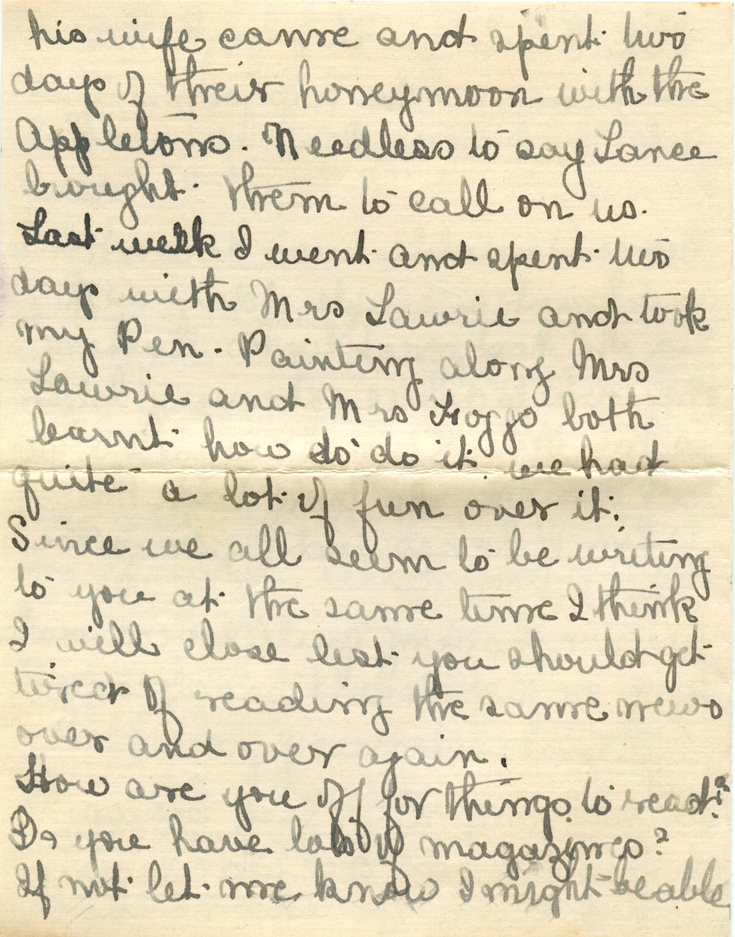 his wife came and spent two
days of their honeymoon with the
Appletons. Needless to say Lance
brought them to call on us.
Last week I went and spent two
days with Mrs Lawrie and took
my Pen-Painting along Mrs
Lawrie and Mrs Foggo both
learnt how to do it we had
quite a lot of fun over it.
Since we all seem to be writing
to you at the same time I think
I will close lest you should get
tired of reading the same news
over and over again.
How are you off for things to read?
Do you have lots of magazines?
If not let me know I might be able